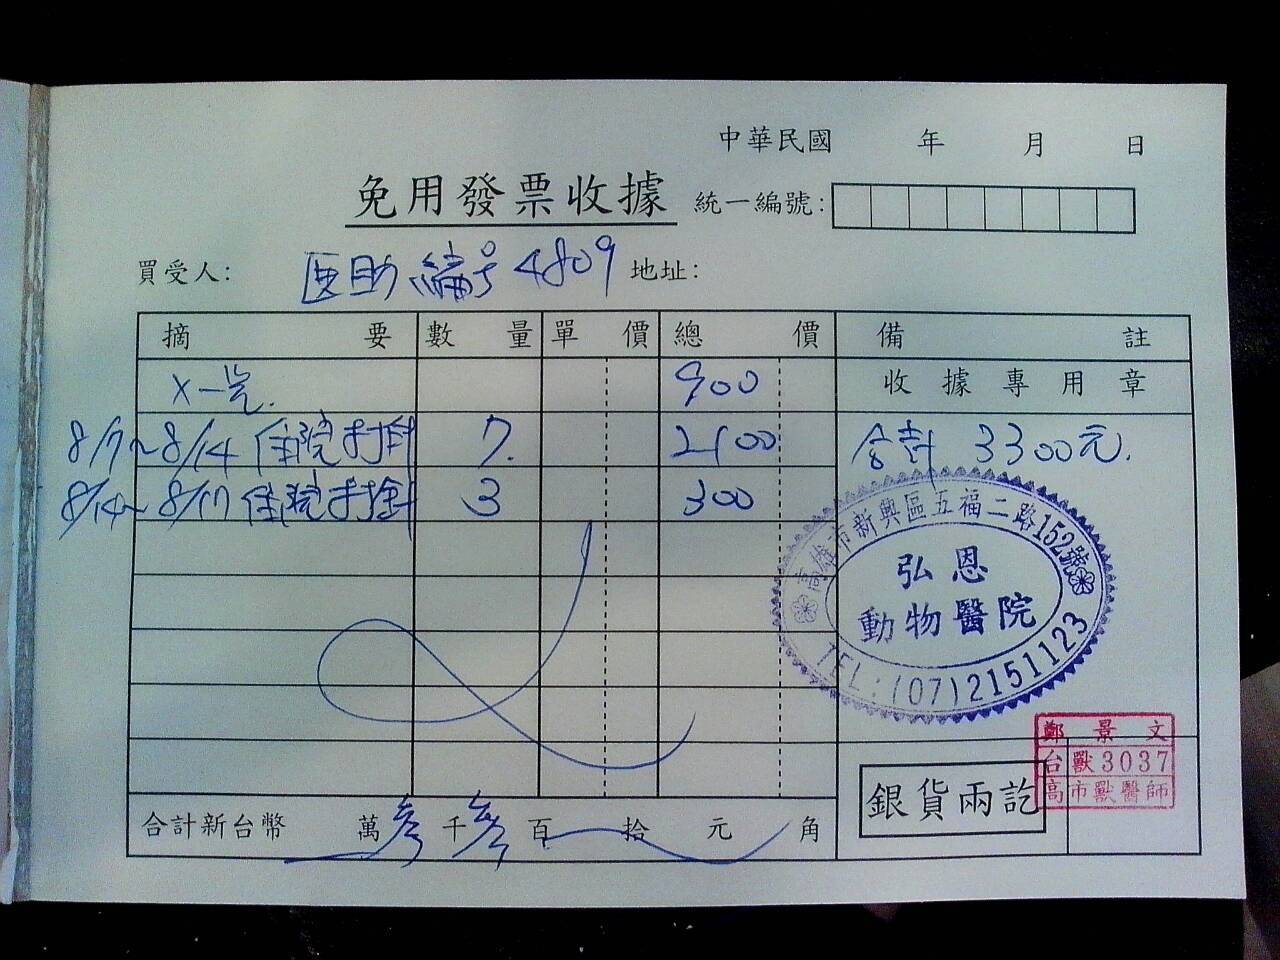 中華民國 年 月 日
免用發票收據 統一編號:
買受人: 医助編号4809 地址:
摘要 數量 單價 總價 備註
X一光. 900 收據專用章
8/7~8/14 住院打針 7. 2100 合計 3300元.
8/14~8/17 住院打針 3 300
高雄市新興區五福二路152號
弘恩
動物醫院
TEL:(07)2151123
鄭景文
台獸3037
高市獸醫師
銀貨兩訖
合計新台幣 萬參千參百 拾 元 角